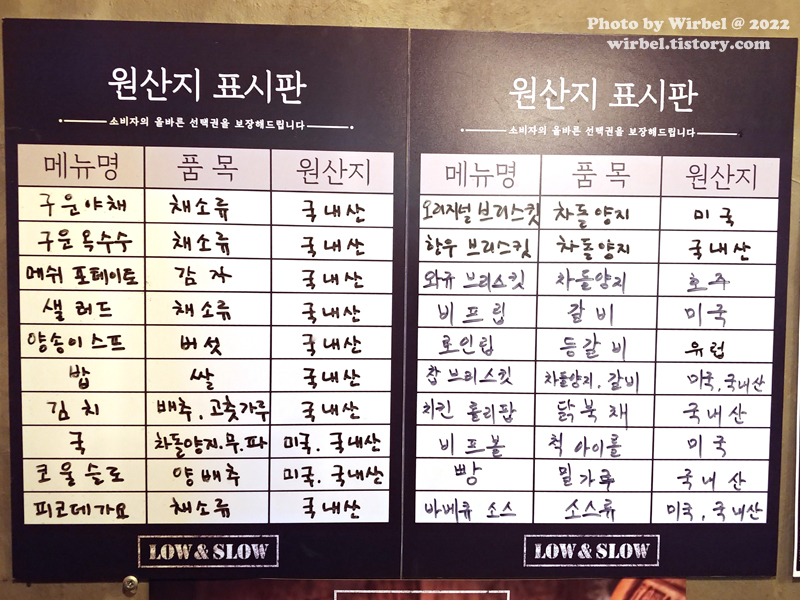 Photo by Wirbel @ 2022
wirbel.tistory.com
원산지 표시판
소비자의 올바른 선택권을 보장해드립니다
메뉴명 품 목 원산지
구운야채 채소류 국내산
구운옥수수 채소류 국내산
메쉬 포테이토 감 자 국내산
샐러드 채소류 국내산
양송이스프 버섯 국내산
밥 쌀 국내산
김 치 배추, 고춧가루 국내산
국 차돌양지.무.파 미국. 국내산
코울슬로 양배추 미국. 국내산
피코데가요 채소류 국내산
LOW & SLOW
원산지 표시판
소비자의 올바른 선택권을 보장해드립니다
메뉴명 품 목 원산지
오리지널 브리스킷 차돌양지 미 국
한우 브리스킷 차돌양지 국내산
와규 브리스킷 차돌양지 호 주
비 프 립 갈 비 미 국
로인립 등갈 비 유 럽
찹 브리스킷 차돌양지, 갈비 미국, 국내산
치킨 롤리팝 닭 북 채 국내산
비 프 볼 척 아이롤 미 국
빵 밀 가루 국내 산
바베큐 소스 소스류 미국, 국내산
LOW & SLOW